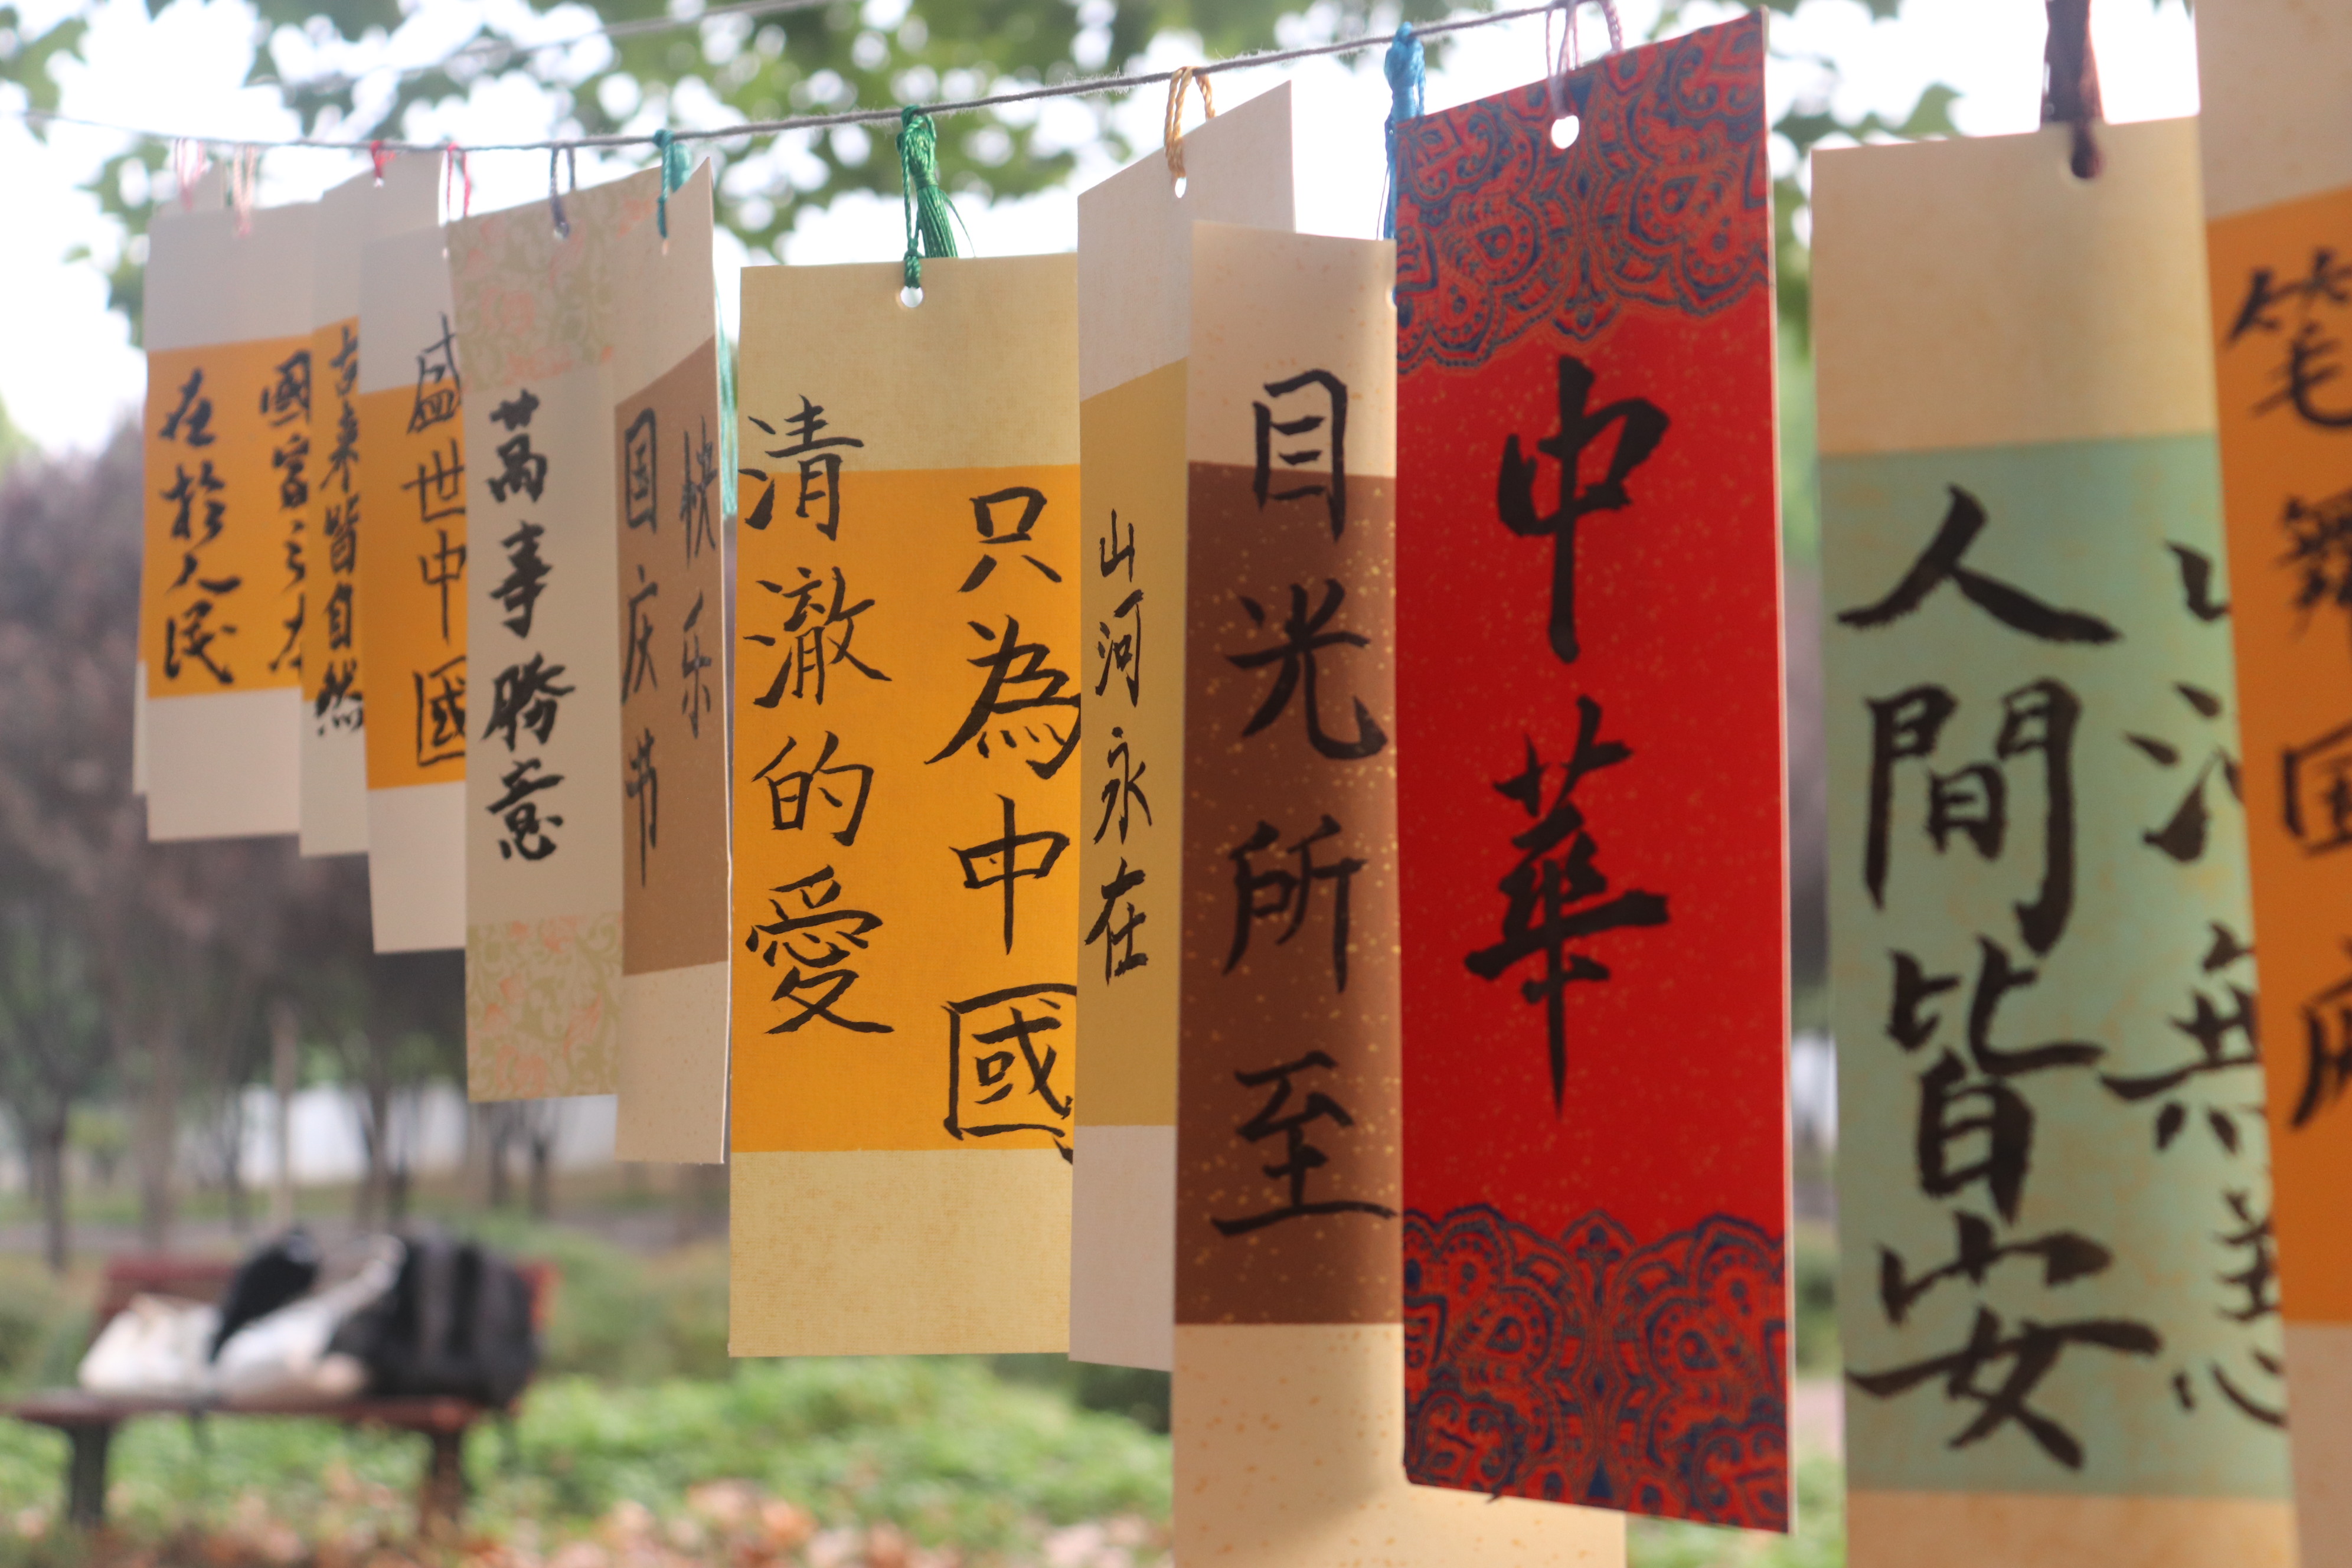 國富之本
在於人民
古來皆自然
盛世中國
萬事勝意
快乐
国庆节
只為中國
清澈的愛
山河永在
目光所至
中華
山河無恙
人間皆安